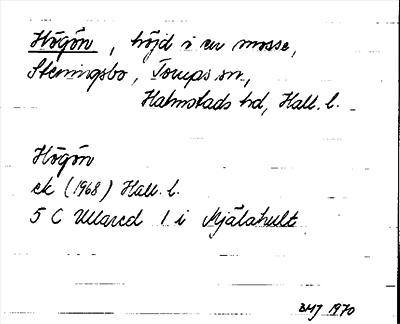 Högön, höjd i en mosse,
Steningsbo, Torups sn.,
Halmstads hd, Hall. l.
Högön
ek (1968) Hall. l.
5 C Ullared 1 i Mjälahult
BMJ 1970